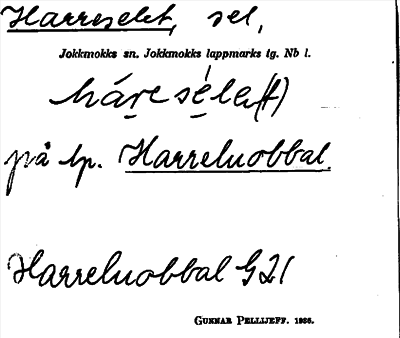 Harreselet, sel,
Jokkmokks sn. Jokkmokks lappmarks tg. Nb l.
háre sélɛ(t)
på lp. Harreluobbal.
Harreluobbal G21
GUNNAR PELLIJEFF. 1956.